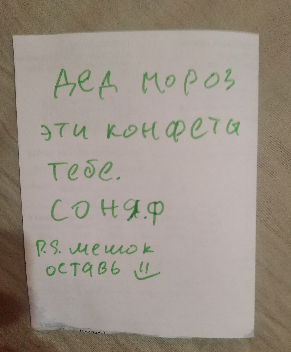 ДЕД МОРОЗ
ЭТИ КОНФЕТЫ
ТЕБЕ.
СОНЯ.Ф
P.S. МЕШОК
ОСТАВЬ